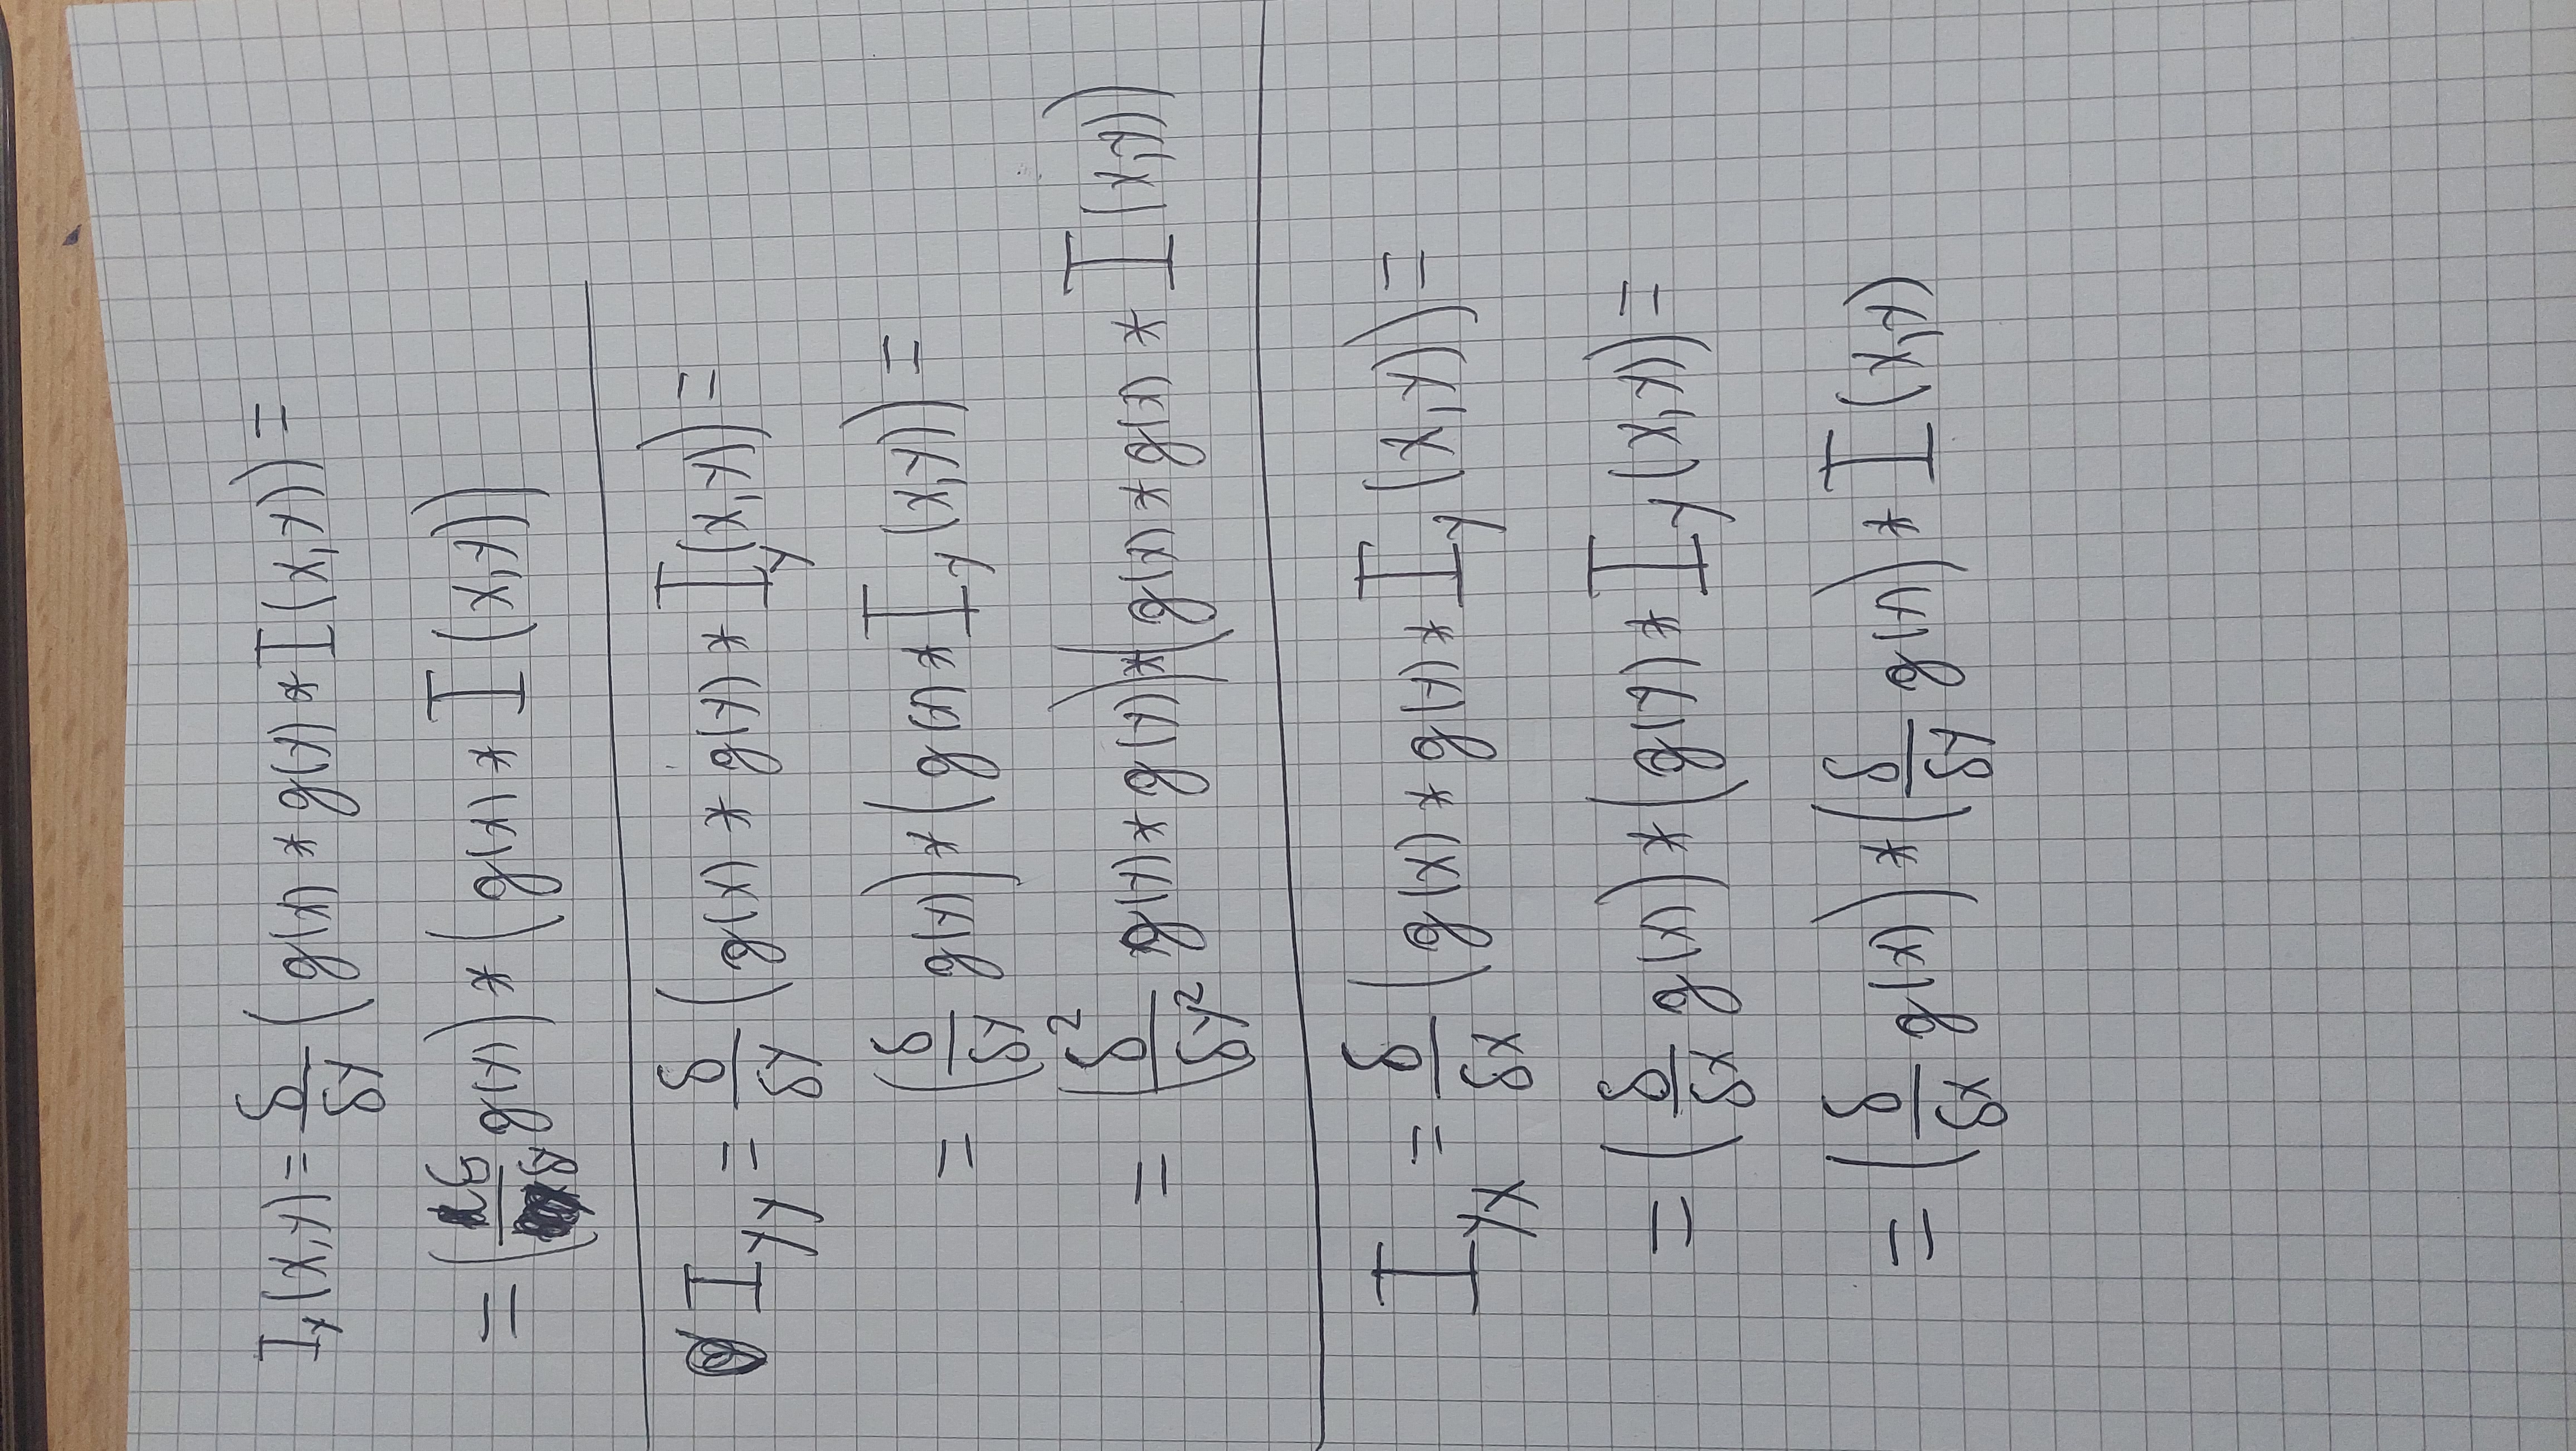 I_y(x,y) = δ/δy (g(x) * g(y) * I(x,y)) =
= (δ/δy g(y)) * (g(x) * I(x,y))
I_yy = δ/δy (g(x) * g(y) * I_y(x,y)) =
= (δ/δy g(y)) * (g(x) * I_y(x,y)) =
= (δ²/δy² g(y) * g(y)) * (g(x) * g(x) * I(x,y))
I_yx = δ/δx (g(x) * g(y) * I_y(x,y)) =
= (δ/δx g(x)) * (g(y) * I_y(x,y)) =
= (δ/δx g(x)) * (δ/δy g(x)) * I(x,y)